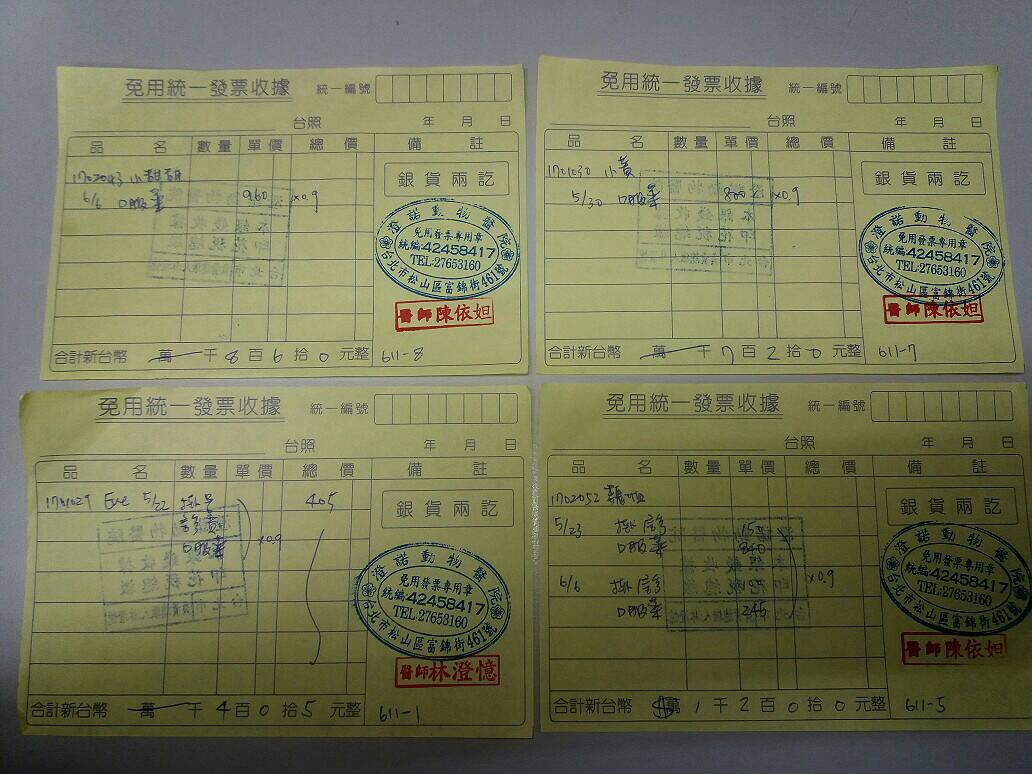 免用統一發票收據 統一編號
台照 年 月 日
品 名 數量 單價 總 價 備 註
1702043 小甜甜
6/6 口服藥 960 ×0.9
銀貨兩訖
澄諾動物醫院
免用發票專用章
統編:42458417
TEL:27653160
台北市松山區富錦街461號
醫師陳依妲
合計新台幣 萬 千 8 百 6 拾 0 元整 611-8
免用統一發票收據 統一編號
台照 年 月 日
品 名 數量 單價 總 價 備 註
1701030 小黃
5/30 口服藥 800 ×0.9
銀貨兩訖
澄諾動物醫院
免用發票專用章
統編:42458417
TEL:27653160
台北市松山區富錦街461號
醫師陳依妲
合計新台幣 萬 千 7 百 2 拾 0 元整 611-7
免用統一發票收據 統一編號
台照 年 月 日
品 名 數量 單價 總 價 備 註
1701029 Eve 5/22 掛號 405
診察
口服藥 ×0.9
銀貨兩訖
澄諾動物醫院
免用發票專用章
統編:42458417
TEL:27653160
台北市松山區富錦街461號
醫師林澄憶
合計新台幣 萬 千 4 百 0 拾 5 元整 611-1
免用統一發票收據 統一編號
台照 年 月 日
品 名 數量 單價 總 價 備 註
1702052
5/23 掛診 150
口服藥 840
6/6 掛診
口服藥 245 ×0.9
銀貨兩訖
澄諾動物醫院
免用發票專用章
統編:42458417
TEL:27653160
台北市松山區富錦街461號
醫師陳依妲
合計新台幣 萬 1 千 2 百 0 拾 0 元整 611-5